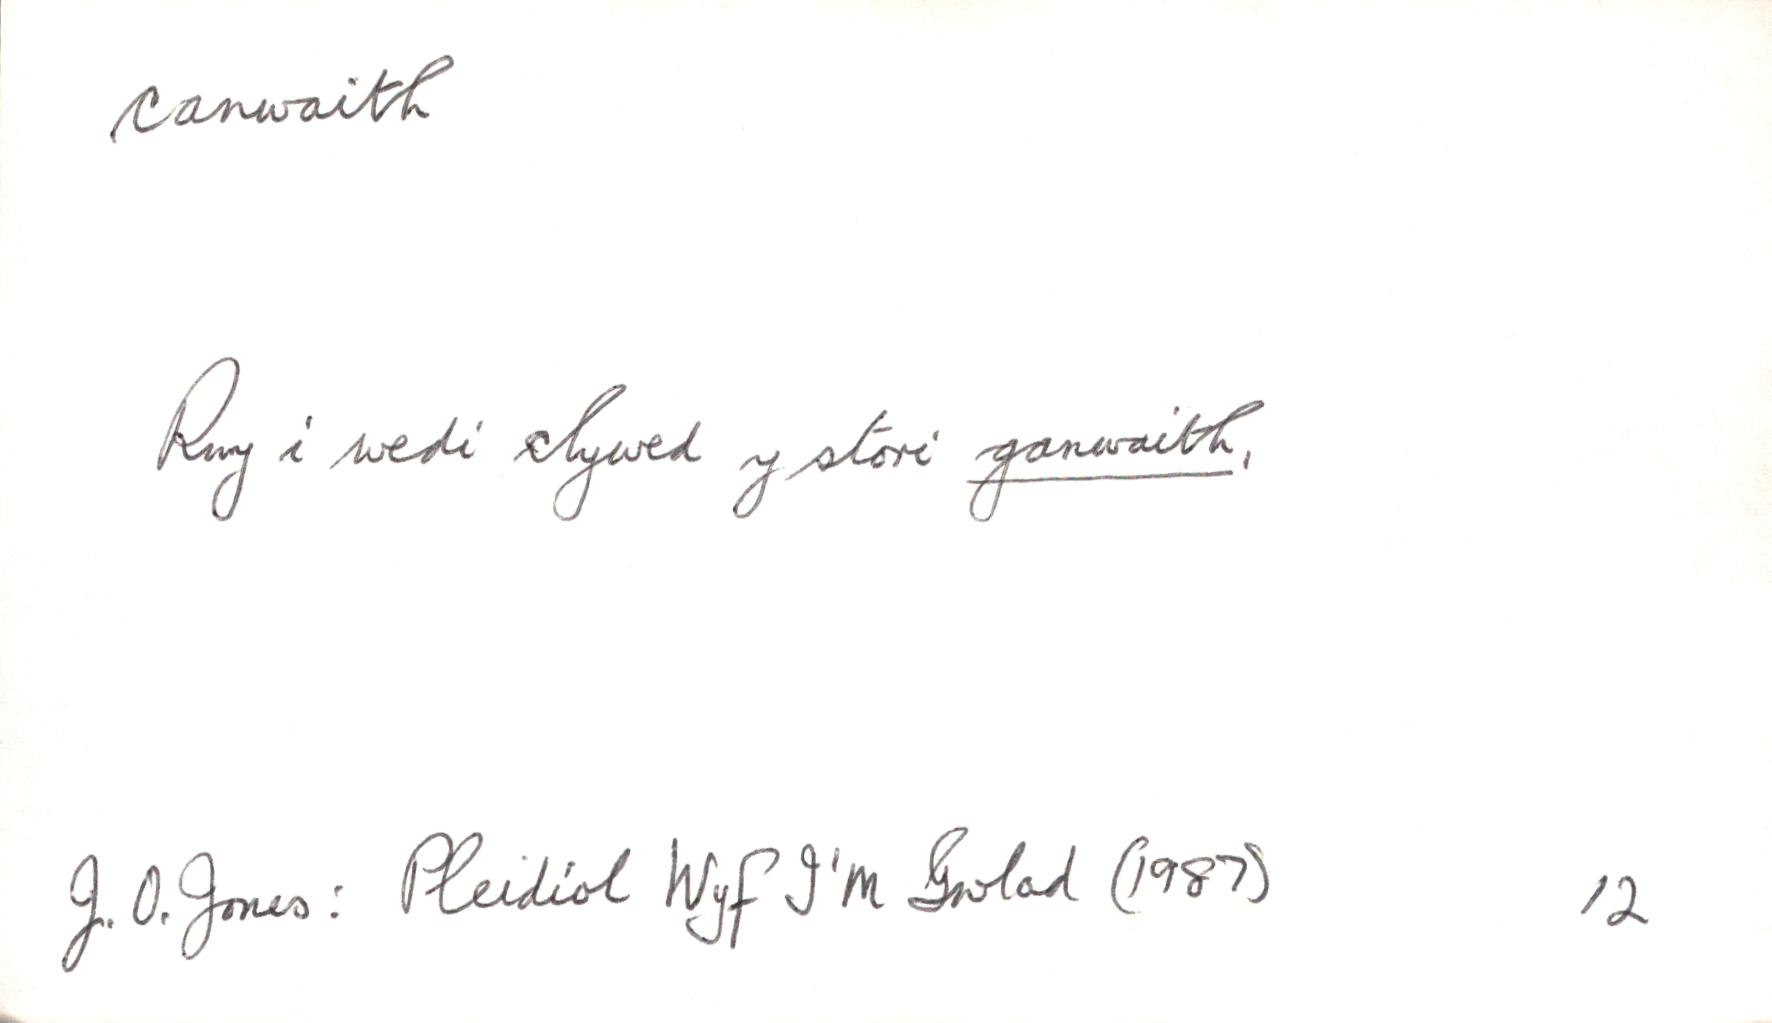 canwaith
Rwy i wedi clywed y stori ganwaith,
J. O. Jones: Pleidiol Wyf I'm Gwlad (1987) 12